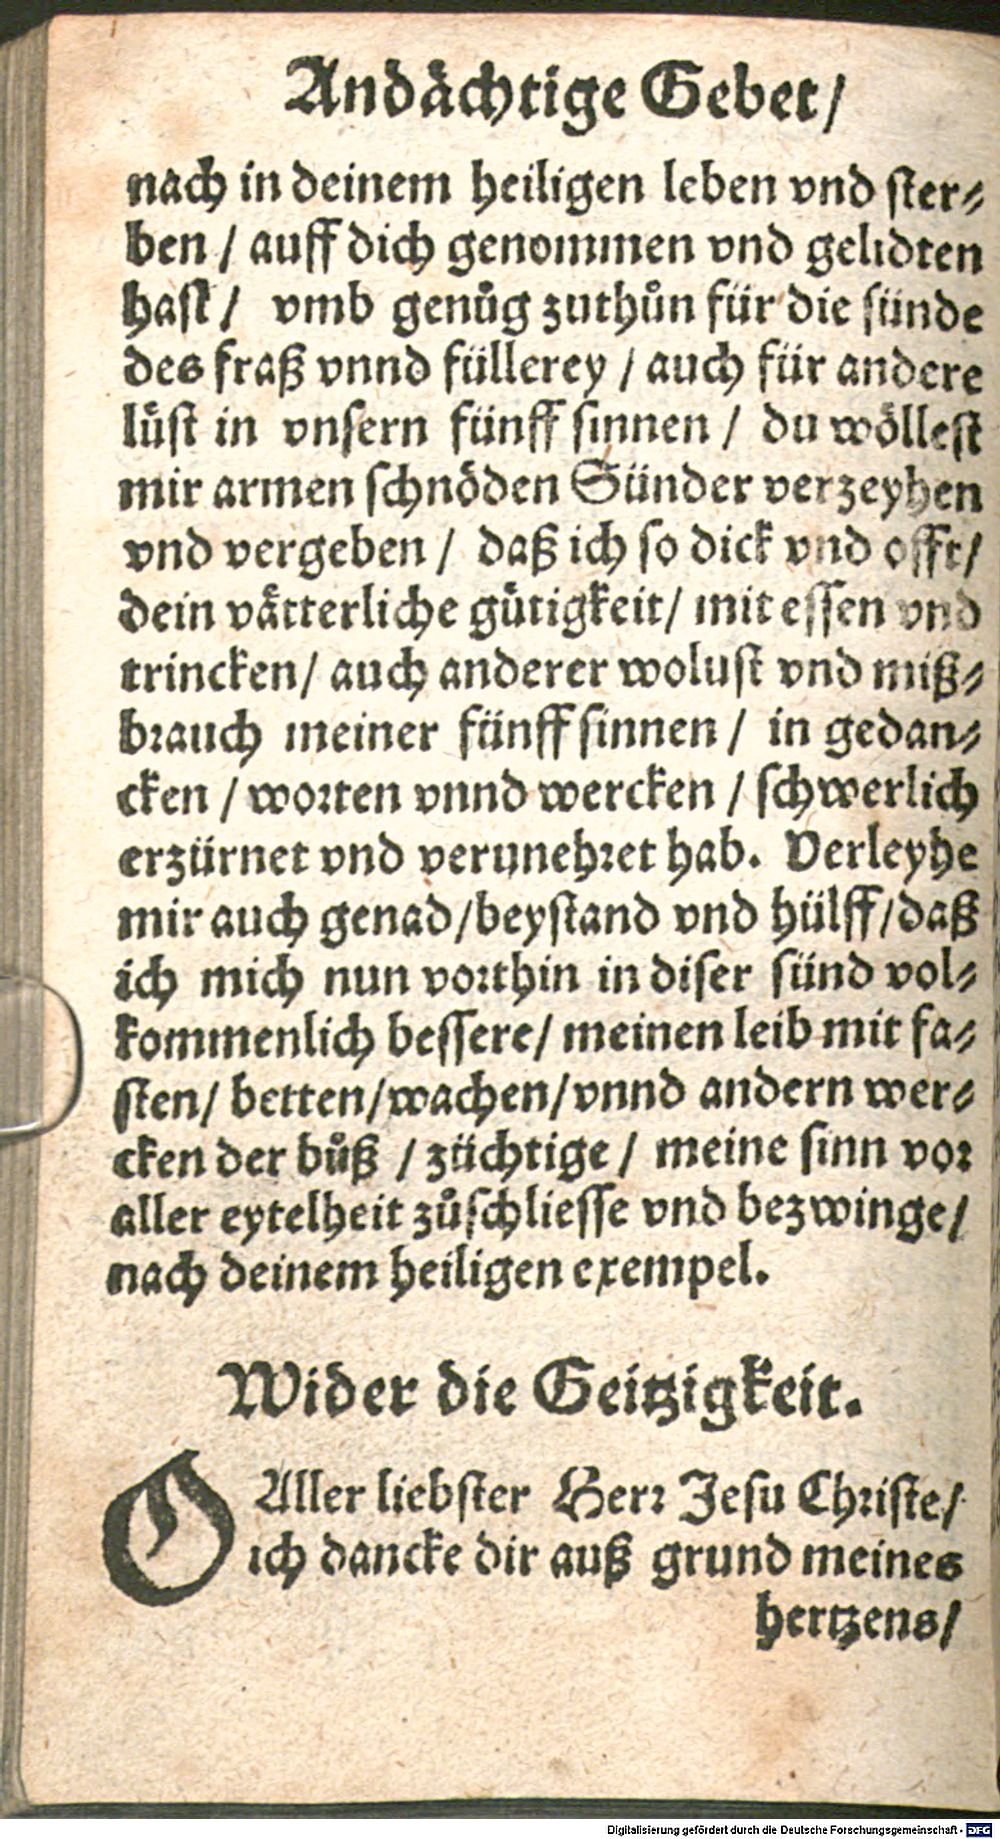 Andaͤchtige Gebet/
nach in deinem heiligen leben vnd ster⸗
ben / auff dich genommen vnd gelidten
hast / vmb genuͦg zuthuͦn für die sünde
des fraß vnnd füllerey / auch für andere
luͤst in vnsern fünff sinnen / du woͤllest
mir armen schnoͤden Sünder verzeyhen
vnd vergeben / daß ich so dick vnd offt/
dein vaͤtterliche guͤtigkeit/ mit essen vnd
trincken/ auch anderer wolust vnd miß⸗
brauch meiner fünff sinnen / in gedan⸗
cken / worten vnnd wercken / schwerlich
erzürnet vnd verunehret hab. Verleyhe
mir auch genad/beystand vnd hülff/daß
ich mich nun vorthin in diser sünd vol⸗
kommenlich bessere/ meinen leib mit fa⸗
sten/ betten/wachen/vnnd andern wer⸗
cken der buͦß / züchtige / meine sinn vor
aller eytelheit zuͦschliesse vnd bezwinge/
nach deinem heiligen exempel.
Wider die Geitzigkeit.
O Aller liebster Herr Jesu Christe/
ich dancke dir auß grund meines
hertzens/
Digitalisierung gefördert durch die Deutsche Forschungsgemeinschaft - DFG